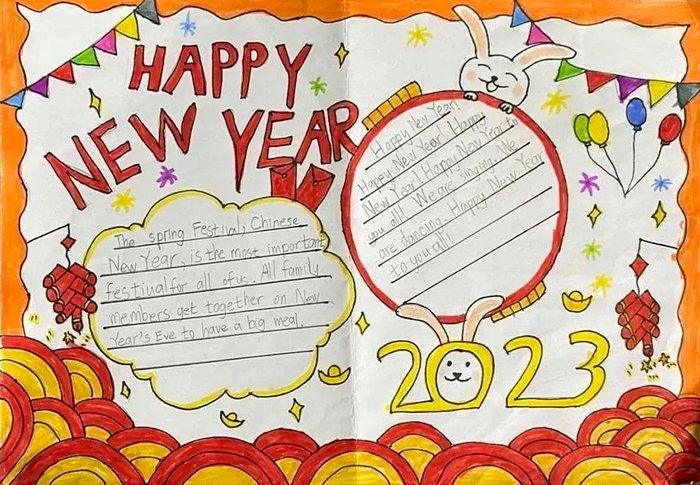 HAPPY
NEW YEAR
The spring Festival, Chinese
New Year, is the most important
festival for all of us. All family
members get together on New
Year's Eve to have a big meal.
Happy New Year!
Happy New Year! Happy
New Year! Happy New Year to
you all! We are singing. We
are dancing. Happy New Year
to you all!
2023